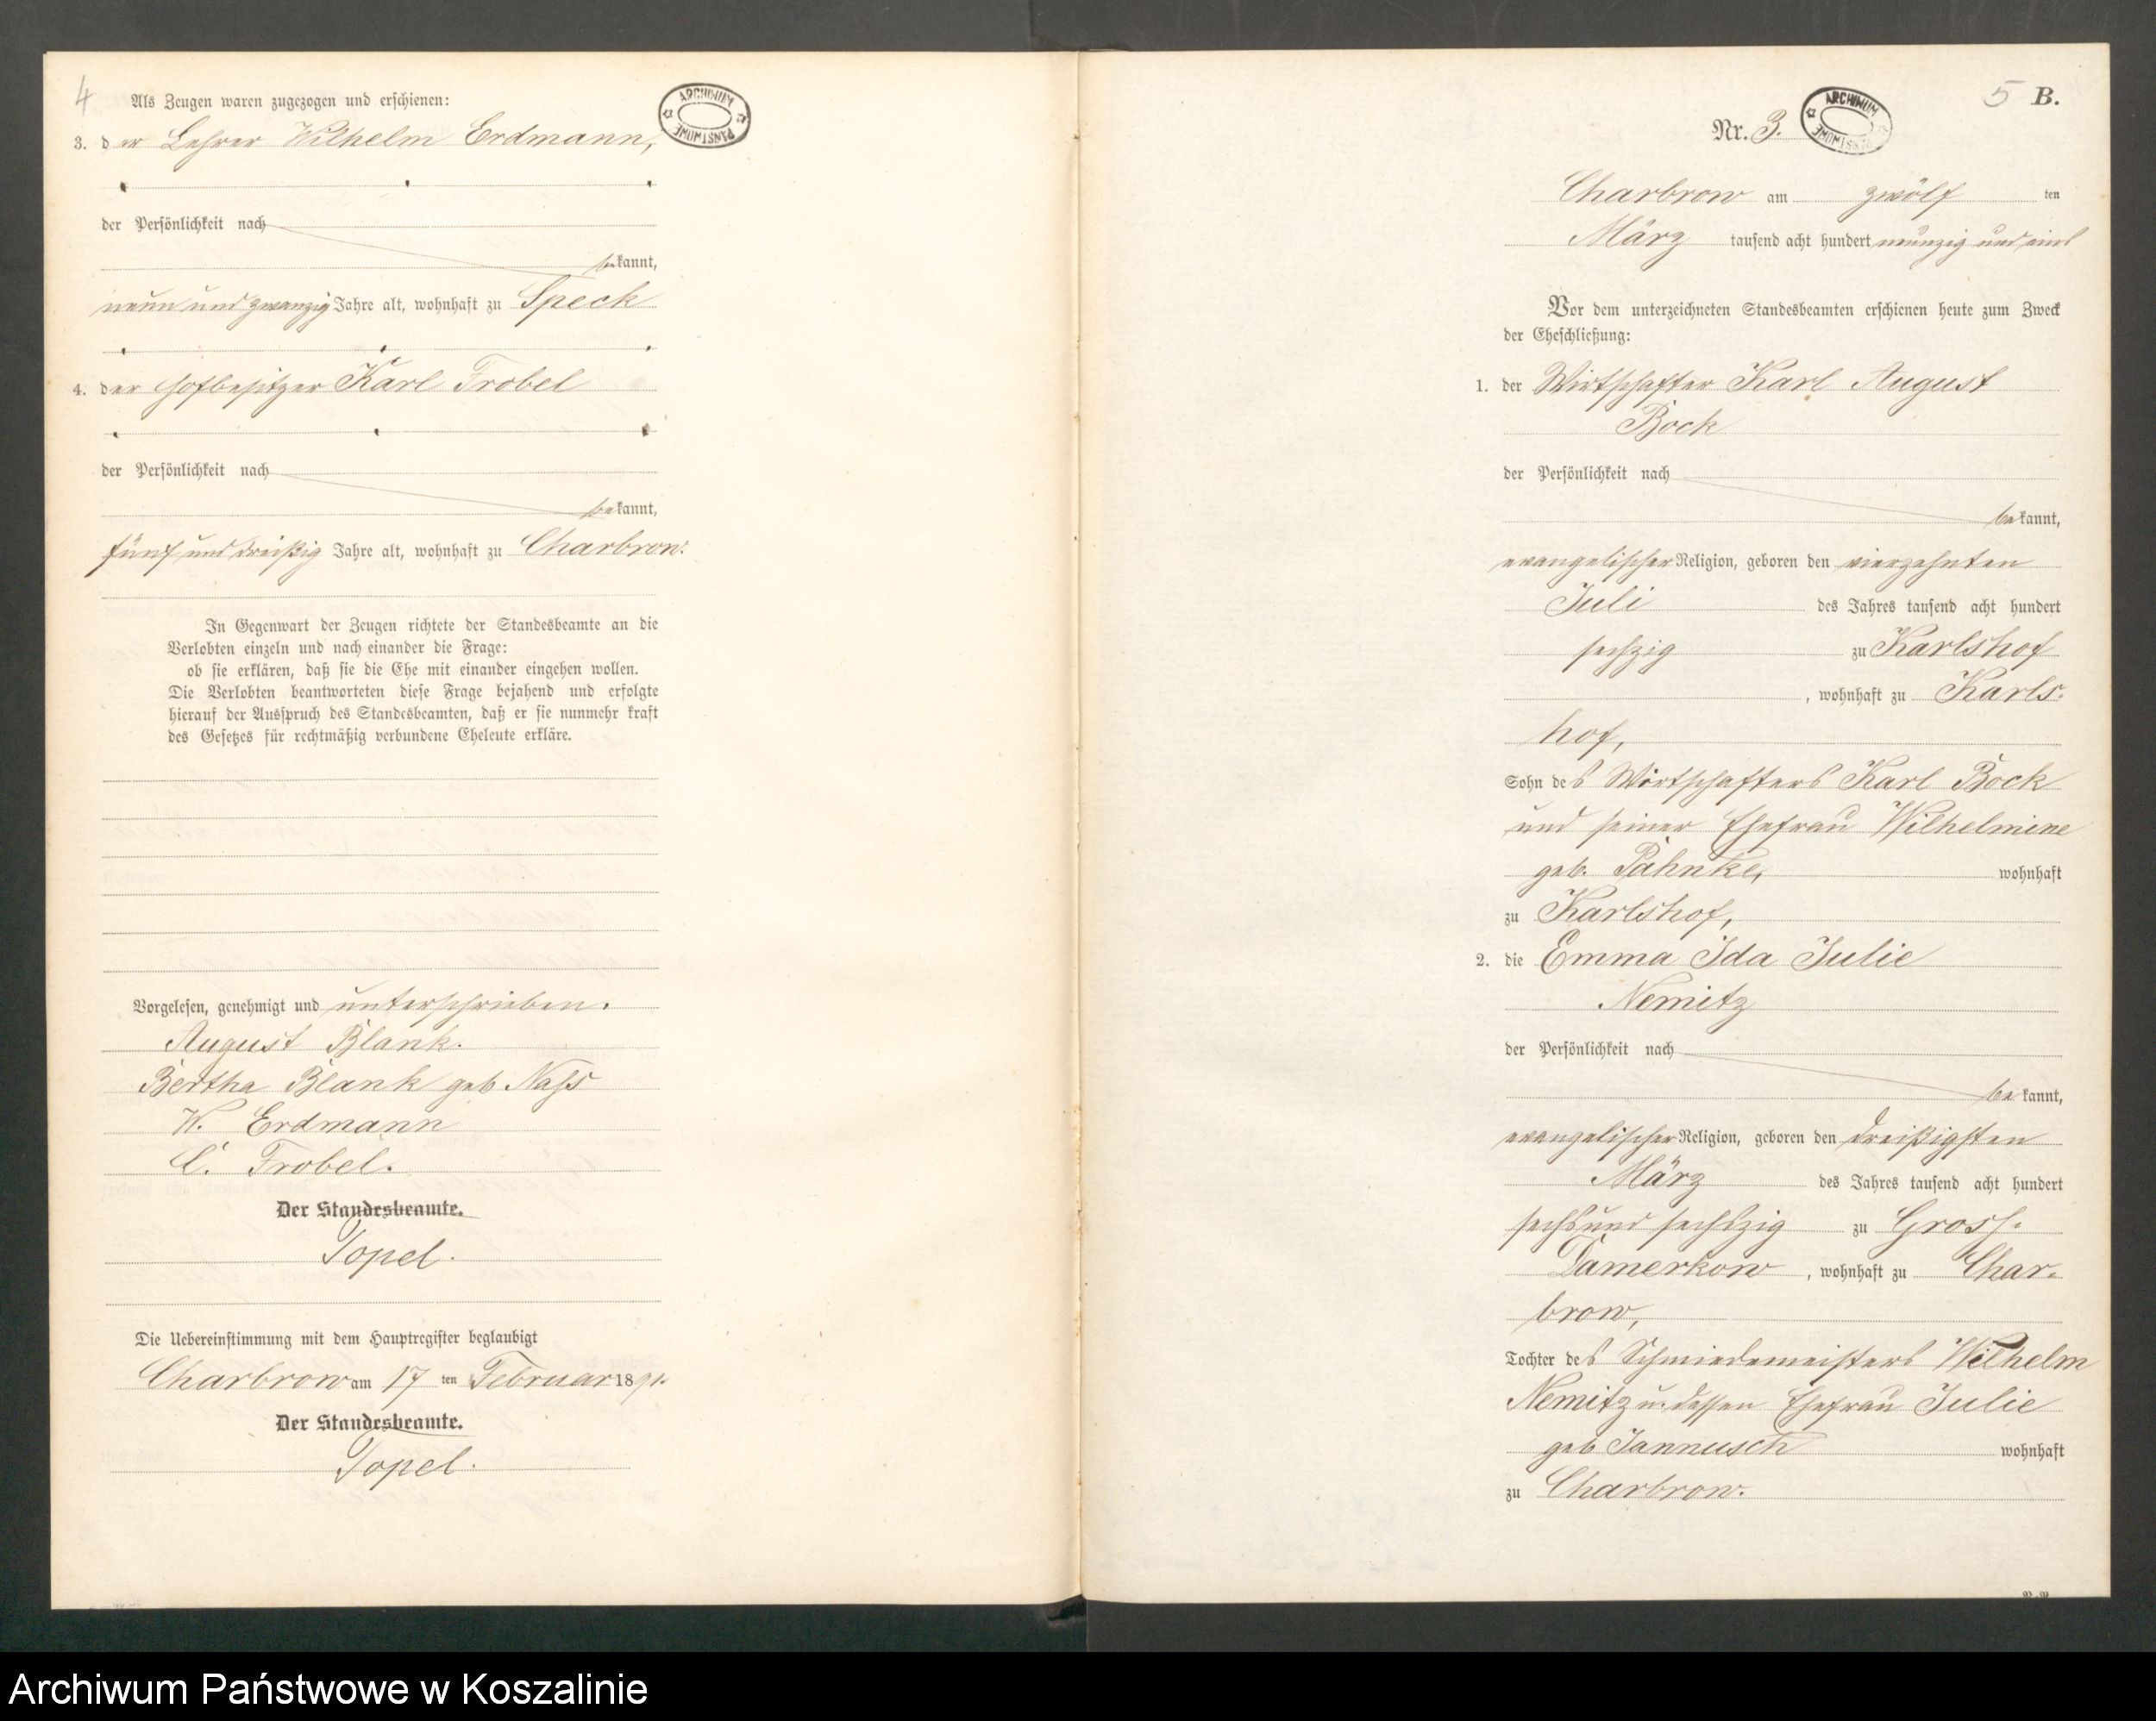 4
Als Zeugen waren zugezogen und erschienen:
ARCHIWUM PAŃSTWOWE
3. der Lehrer Wilhelm Erdmann,
der Persönlichkeit nach
bekannt,
neun und zwanzig Jahre alt, wohnhaft zu Speck
4. der Hofbesitzer Karl Trobel
der Persönlichkeit nach
bekannt,
fünf und dreißig Jahre alt, wohnhaft zu Charbrow.
In Gegenwart der Zeugen richtete der Standesbeamte an die
Verlobten einzeln und nach einander die Frage:
ob sie erklären, daß sie die Ehe mit einander eingehen wollen.
Die Verlobten beantworteten diese Frage bejahend und erfolgte
hierauf der Ausspruch des Standesbeamten, daß er sie nunmehr kraft
des Gesetzes für rechtmäßig verbundene Eheleute erkläre.
Vorgelesen, genehmigt und unterschrieben.
August Blank.
Bertha Blank geb. Nass
W. Erdmann
C. Trobel.
Der Standesbeamte.
Topel.
Die Uebereinstimmung mit dem Hauptregister beglaubigt
Charbrow am 17 ten Februar 1891.
Der Standesbeamte.
Topel.
5 B.
Nr. 3.
ARCHIWUM PAŃSTWOWE
Charbrow am zwölf ten
März tausend acht hundert neunzig und eins
Vor dem unterzeichneten Standesbeamten erschienen heute zum Zweck
der Eheschließung:
1. der Wirtschafter Karl August
Bock
der Persönlichkeit nach
bekannt,
evangelischer Religion, geboren den vierzehnten
Juli des Jahres tausend acht hundert
sechzig zu Karlshof
, wohnhaft zu Karls-
hof,
Sohn des Wirtschafters Karl Bock
und seiner Ehefrau Wilhelmine
geb. Pahnke, wohnhaft
zu Karlshof,
2. die Emma Ida Julie
Nemitz
der Persönlichkeit nach
bekannt,
evangelischer Religion, geboren den dreißigsten
März des Jahres tausend acht hundert
sechs und sechszig zu Gross-
Damerkow, wohnhaft zu Char-
brow,
Tochter des Schmiedemeisters Wilhelm
Nemitz u. dessen Ehefrau Julie
geb Jannusch wohnhaft
zu Charbrow.
Archiwum Państwowe w Koszalinie